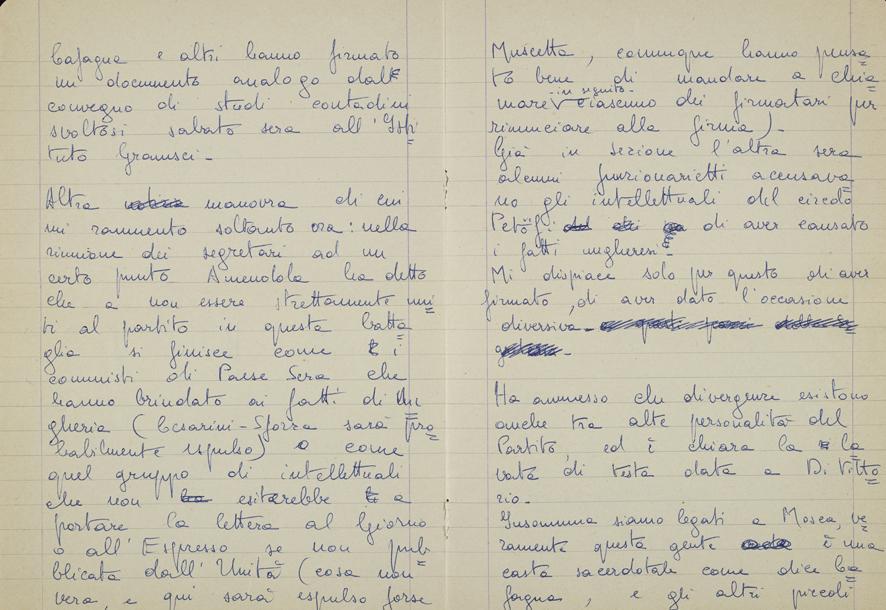 Cafagna e altri hanno firmato
un documento analogo dal
convegno di studi contadini
svoltosi sabato sera all'Isti=
tuto Gramsci.-
Altra manovra di cui
mi rammento soltanto ora: nella
riunione dei segretari ad un
certo punto Amendola ha detto
che a non essere strettamente uni=
ti al partito in questa batta=
glia si finisce come i
comunisti di Paese Sera che
hanno brindato ai fatti di Un=
gheria (Cesarini-Sforza sarà pro=
babilmente espulso) o come
quel gruppo di intellettuali
che non esiterebbe a
portare la lettera al Giorno
o all'Espresso se non pub=
blicata dall'Unità (cosa non
vera, e qui sarà espulso forse
Muscetta, comunque hanno pensa=
to bene di mandare a chia=
mare in seguito ciascuno dei firmatari per
rinunciare alla firma).
Già in sezione l'altra sera
alcuni funzionarietti accusava=
no gli intellettuali del circolo
Petöfi di aver causato
i fatti ungheresi.-
Mi dispiace solo per questo di aver
firmato, di aver dato l'occasione
diversiva.
Ha ammesso che divergenze esistono
anche tra alte personalità del
Partito, ed è chiara la la=
vata di testa data a Di Vitto=
rio.
Insomma siamo legati a Mosca, ve=
ramente questa gente è una
casta sacerdotale come dice Ca=
fagna, e gli altri piccoli